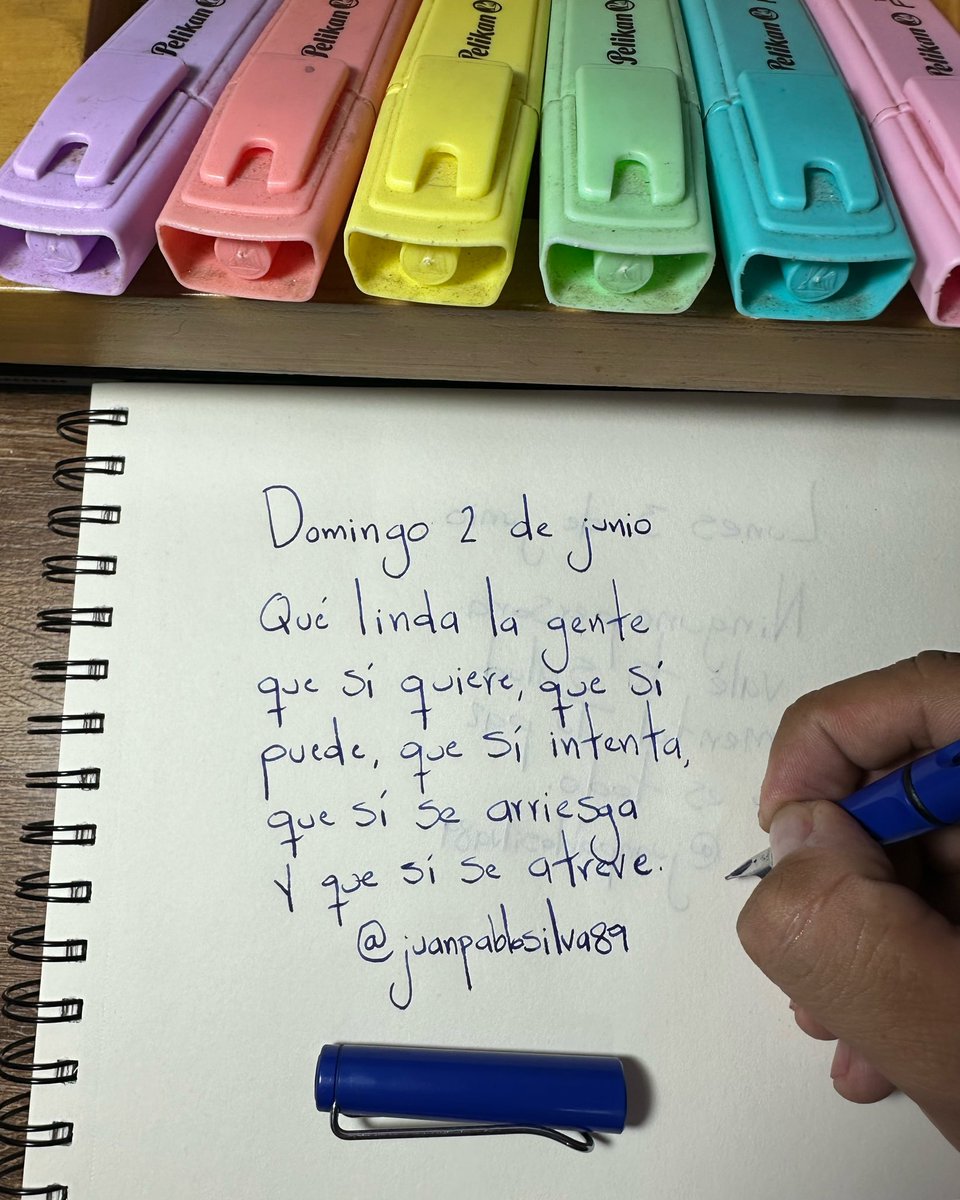 Pelikan
Pelikan
Pelikan
Pelikan
Pelikan
Pelikan
Domingo 2 de junio
Qué linda la gente
que sí quiere, que sí
puede, que sí intenta,
que sí se arriesga
y que sí se atreve.
@juanpablosilva89